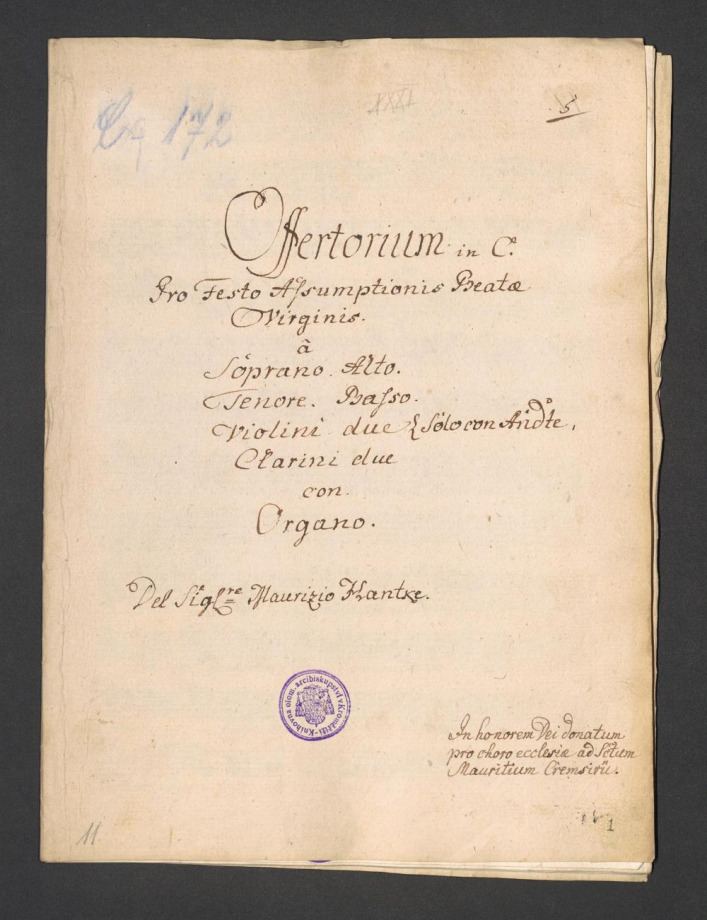 Cq 172
XXXI
5
Offertorium in C.
Pro Festo Assumptionis Beatæ
Virginis.
à
Soprano. Alto.
Tenore. Basso.
Violini due { Solo con And:te,
Clarini due
con.
Organo.
Del Sigl:re Maurizio Hantke.
Knihovna olom. arcibiskupství v Kroměříži
In honorem Dei donatum
pro choro ecclesiæ ad Sctum
Mauritium Cremsirii.
11
1